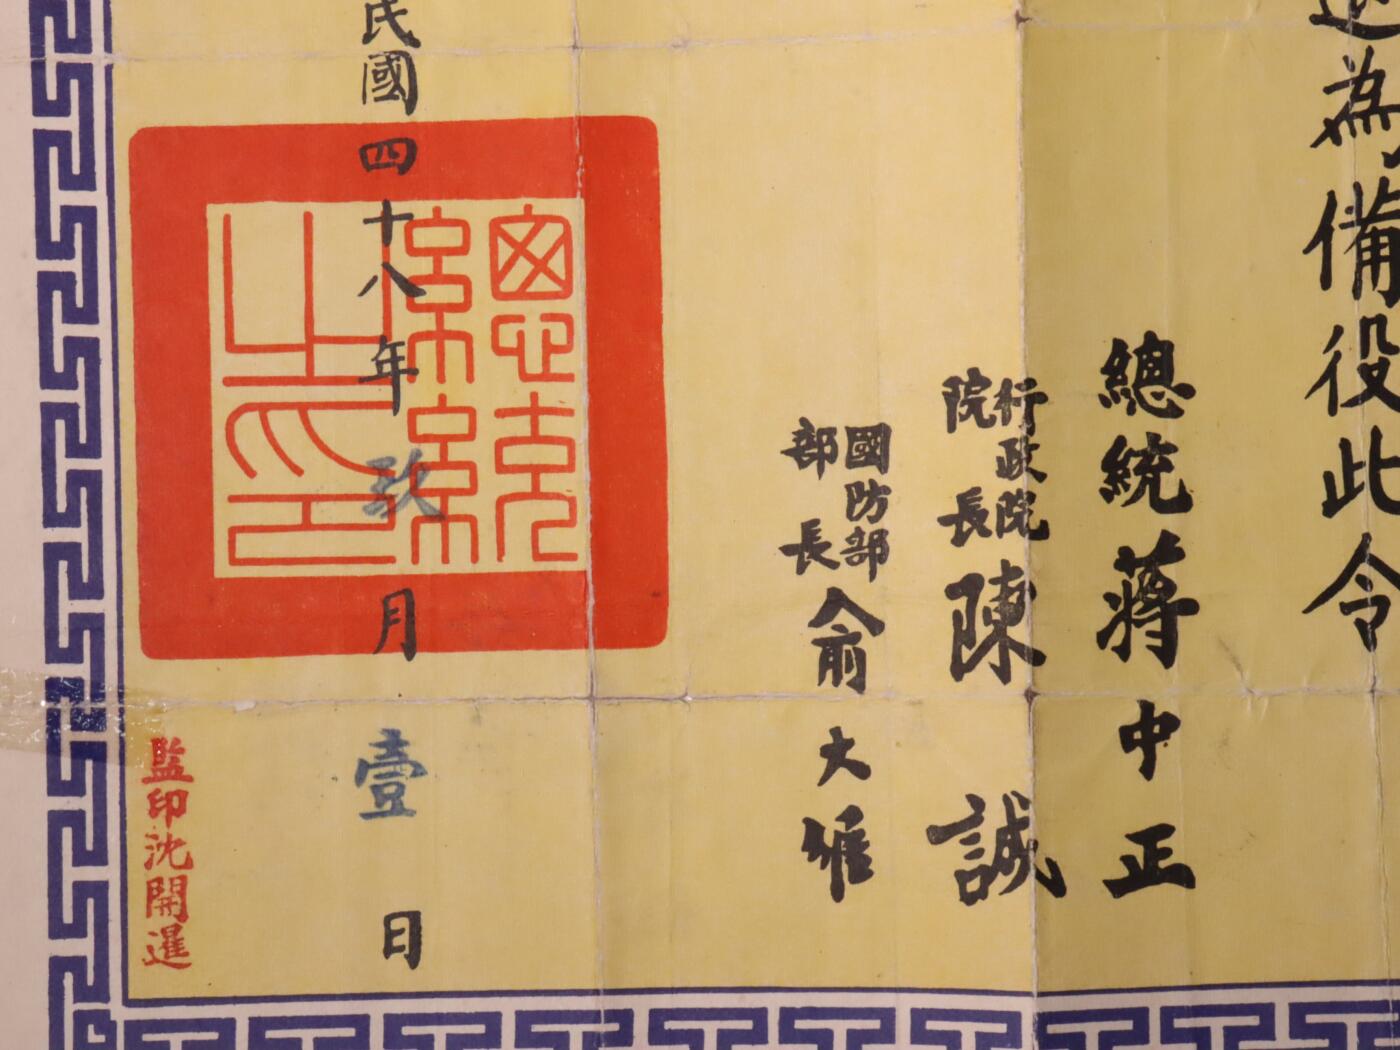 為備役此令
總統蔣中正
行政院
院長陳誠
國防部
部長俞大維
總統
之印
民國四十八年玖月壹日
監印沈開暹